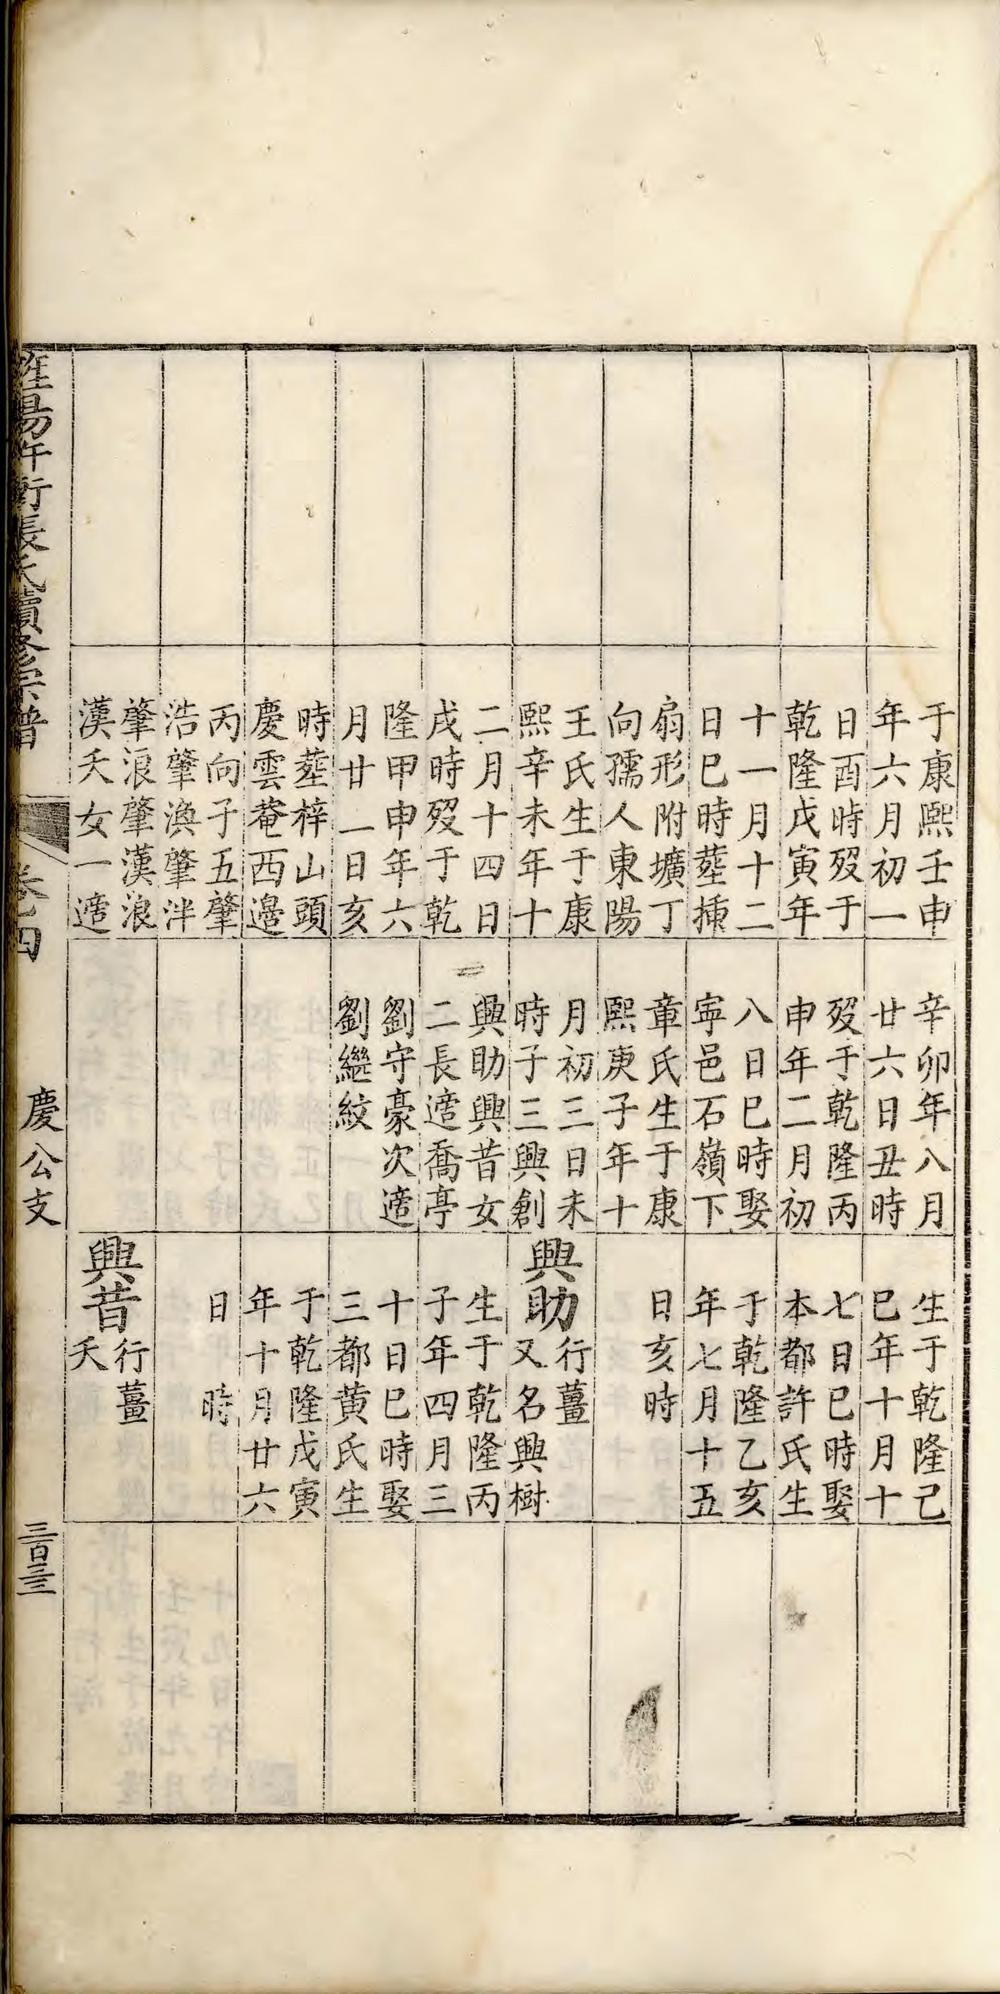 于康熙壬申
年六月初一
日酉時歿于
乾隆戊寅年
十一月十二
日巳時塟揷
扇形附壙丁
向孺人東陽
王氏生于康
熙辛未年十
二月十四日
戌時歿于乾
隆甲申年六
月廿一日亥
時塟梓山頭
慶雲菴西邊
丙向子五肇
浩肇渙肇泮
肇浪肇漢浪
漢夭女一適
辛卯年八月
廿六日丑時
歿于乾隆丙
申年二月初
八日巳時娶
寕邑石嶺下
章氏生于康
熙庚子年十
月初三日未
時子三興創
興助興昔女
二長適喬亭
劉守豪次適
劉繼紋
生于乾隆己
巳年十月十
七日巳時娶
本都許氏生
于乾隆乙亥
年七月十五
日亥時
興助
行薑
又名興樹
生于乾隆丙
子年四月三
十日巳時娶
三都黃氏生
于乾隆戊寅
年十月廿六
日　時
興昔
行薑
夭
旌陽午衝張氏續修宗譜
卷四
慶公支
三百三三